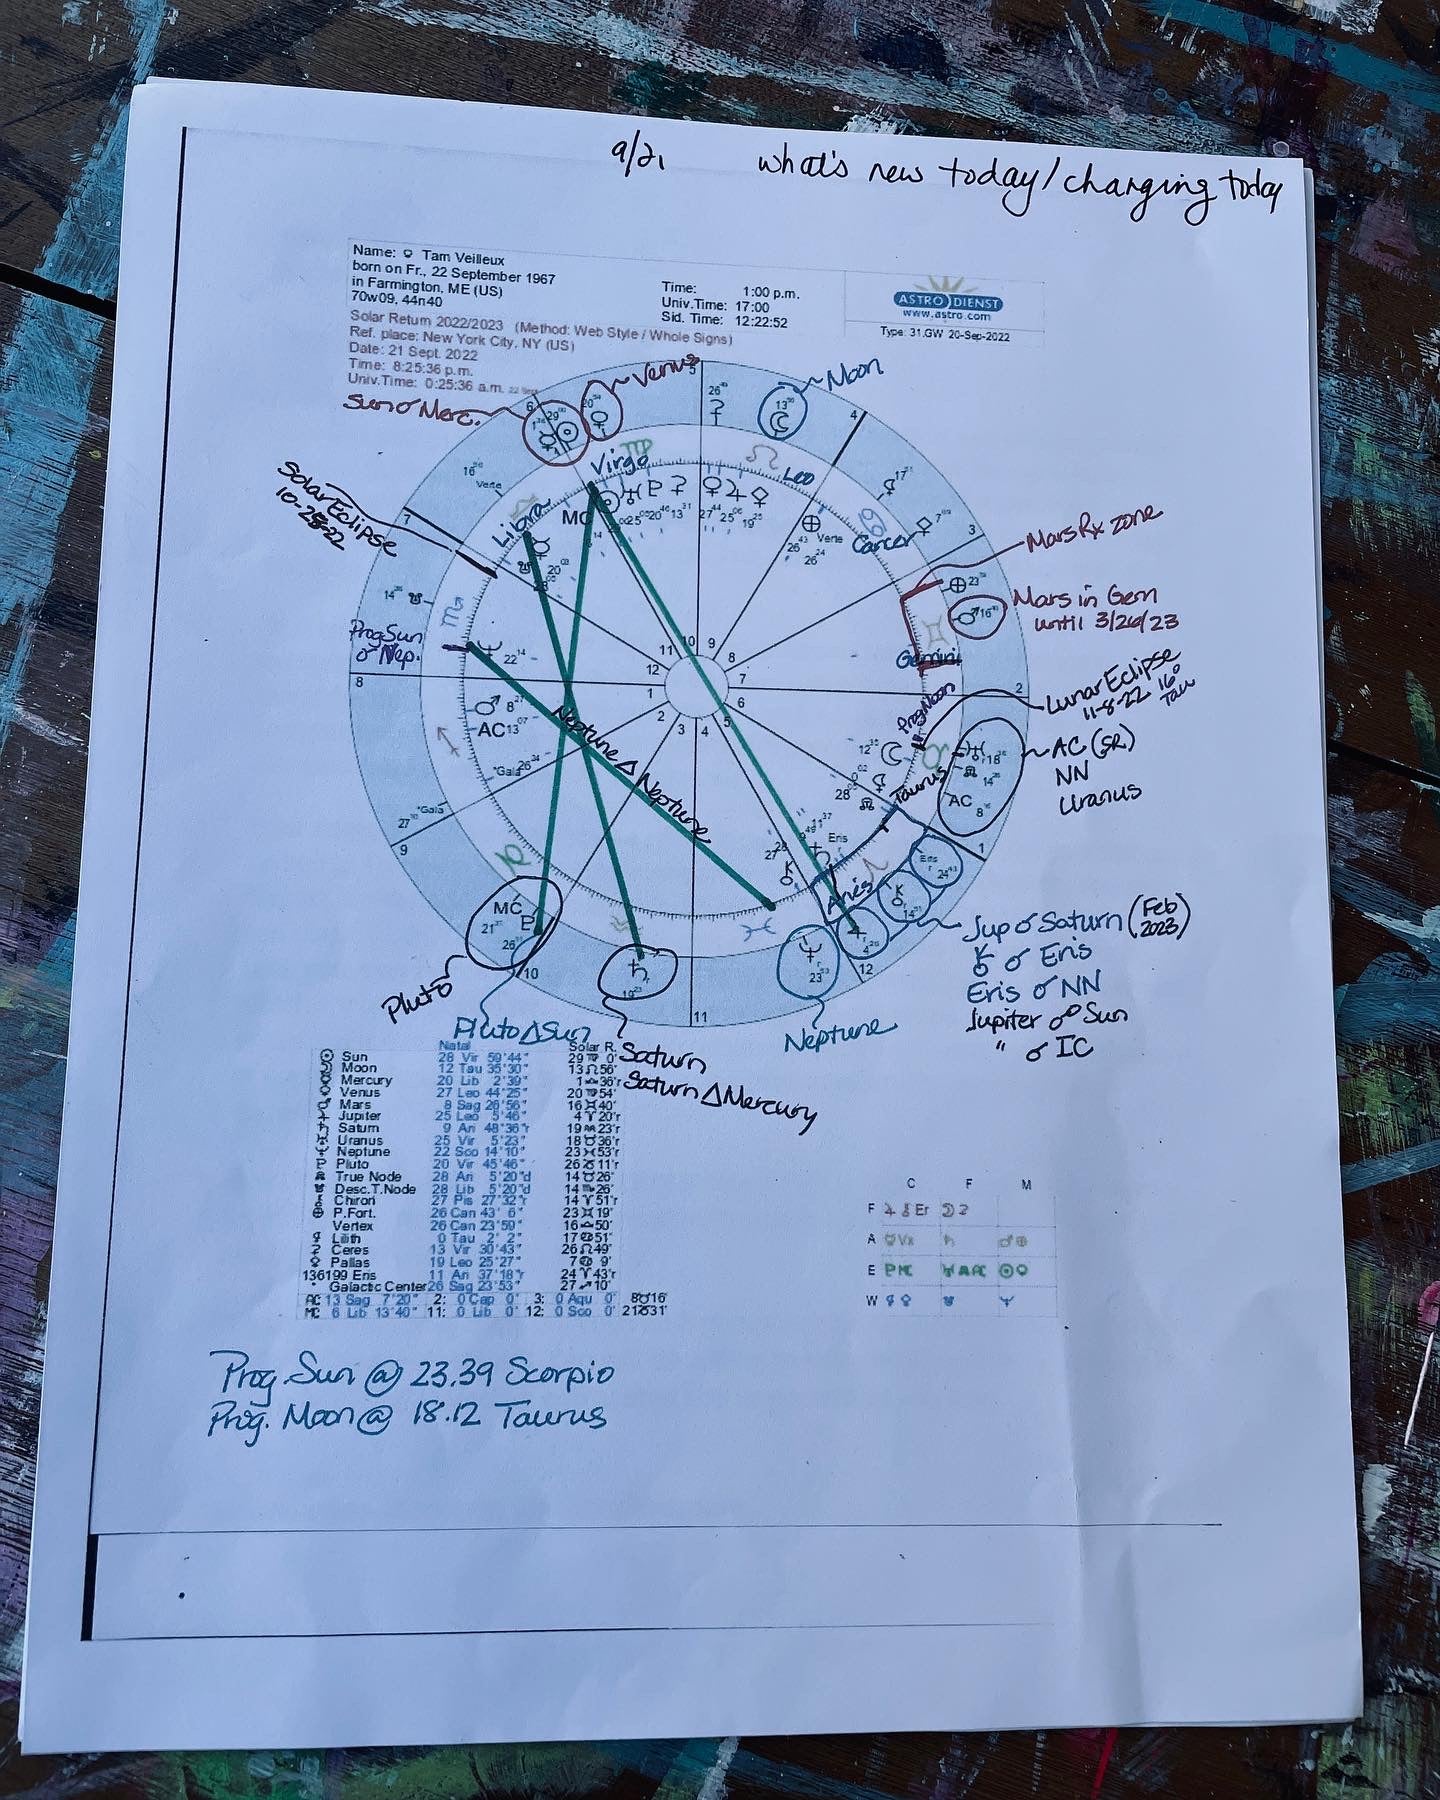 9/21 what's new today/changing today
Name: ♀ Tam Veilleux
born on Fr., 22 September 1967
in Farmington, ME (US)
70w09, 44n40
Time: 1:00 p.m.
Univ.Time: 17:00
Sid. Time: 12:22:52
ASTRO DIENST
www.astro.com
Type: 31.GW 20-Sep-2022
Solar Return 2022/2023 (Method: Web Style / Whole Signs)
Ref. place: New York City, NY (US)
Date: 21 Sept. 2022
Time: 8:25:36 p.m.
Univ.Time: 0:25:36 a.m. 22 Sep
Sun ☌ Merc.
Venus
Moon
Solar Eclipse
10-25-22
Virgo
Leo
Libra
Cancer
MC
Verte
Verte
Mars Rx zone
Mars in Gem
until 3/26/23
Gemini
Prog Sun
☌ Nep.
Prog Moon
Lunar Eclipse
11-8-22 16°
Tau
AC (SR)
NN
Uranus
Taurus
AC
AC 13
Neptune △ Neptune
*Gala
*Gala
Eris
Eris
Aries
MC
Pluto
Pluto △ Sun
Saturn
Saturn △ Mercury
Neptune
Jup ☌ Saturn (Feb 2023)
⚷ ☌ Eris
Eris ☌ NN
Jupiter ☍ Sun
" ☌ IC
Natal Solar R.
☉ Sun 28 Vir 59'44" 29♍ 0'
☽ Moon 12 Tau 35'30" 13♌56'
☿ Mercury 20 Lib 2'39" 1♎36'r
♀ Venus 27 Leo 44'25" 20♍54'
♂ Mars 8 Sag 26'56" 16♊40'
♃ Jupiter 25 Leo 5'46" 4♈20'r
♄ Saturn 9 Ari 48'36"r 19♒23'r
♅ Uranus 25 Vir 5'23" 18♉36'r
♆ Neptune 22 Sco 14'10" 23♓53'r
♇ Pluto 20 Vir 45'46" 26♑11'r
☊ True Node 28 Ari 5'20"d 14♉26'
☋ Desc.T.Node 28 Lib 5'20"d 14♏26'
⚷ Chiron 27 Pis 27'32"r 14♈51'r
⊕ P.Fort. 26 Can 43' 6" 23♊19'
Vertex 26 Can 23'59" 16♎50'
⚸ Lilith 0 Tau 2' 2" 17♋51'
⚳ Ceres 13 Vir 30'43" 26♌49'
⚴ Pallas 19 Leo 25'27" 7♋ 9'
136199 Eris 11 Ari 37'18"r 24♈43'r
* Galactic Center 26 Sag 23'53" 27♐10'
AC 13 Sag 7'20" 2: 0 Cap 0' 3: 0 Aqu 0' 8♉16'
MC 6 Lib 13'40" 11: 0 Lib 0' 12: 0 Sco 0' 21♑31'
C F M
F ♃⚷Er ☽⚳
A ☿Vx ♄ ♂⊕
E ♇MC ♅☊AC ☉♀
W ⚸⚴ ☋ ♆
Prog. Sun @ 23.39 Scorpio
Prog. Moon @ 18.12 Taurus